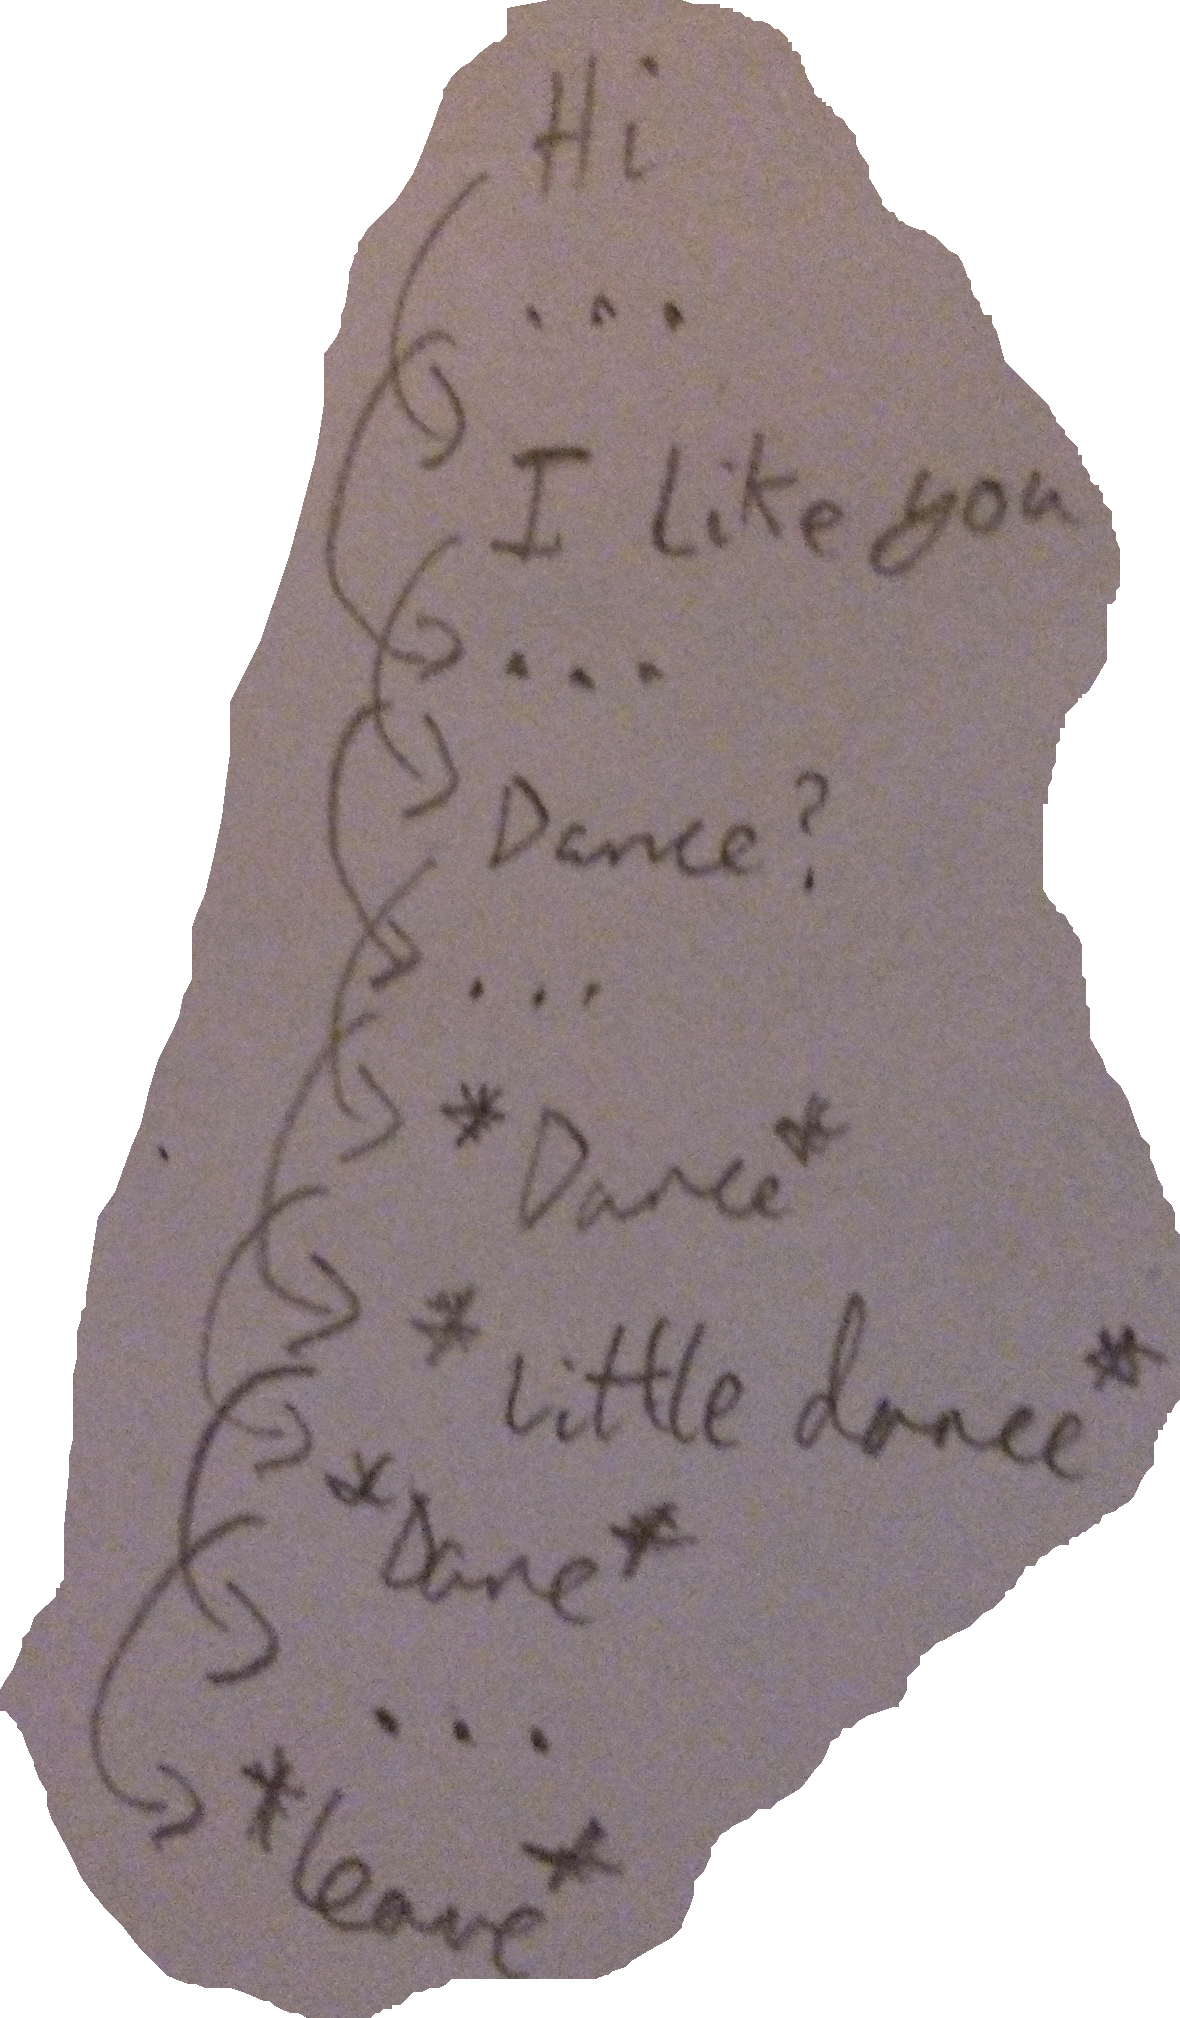 Hi
...
I like you
...
Dance?
...
*Dance*
*Little dance*
*Dance*
...
*leave*